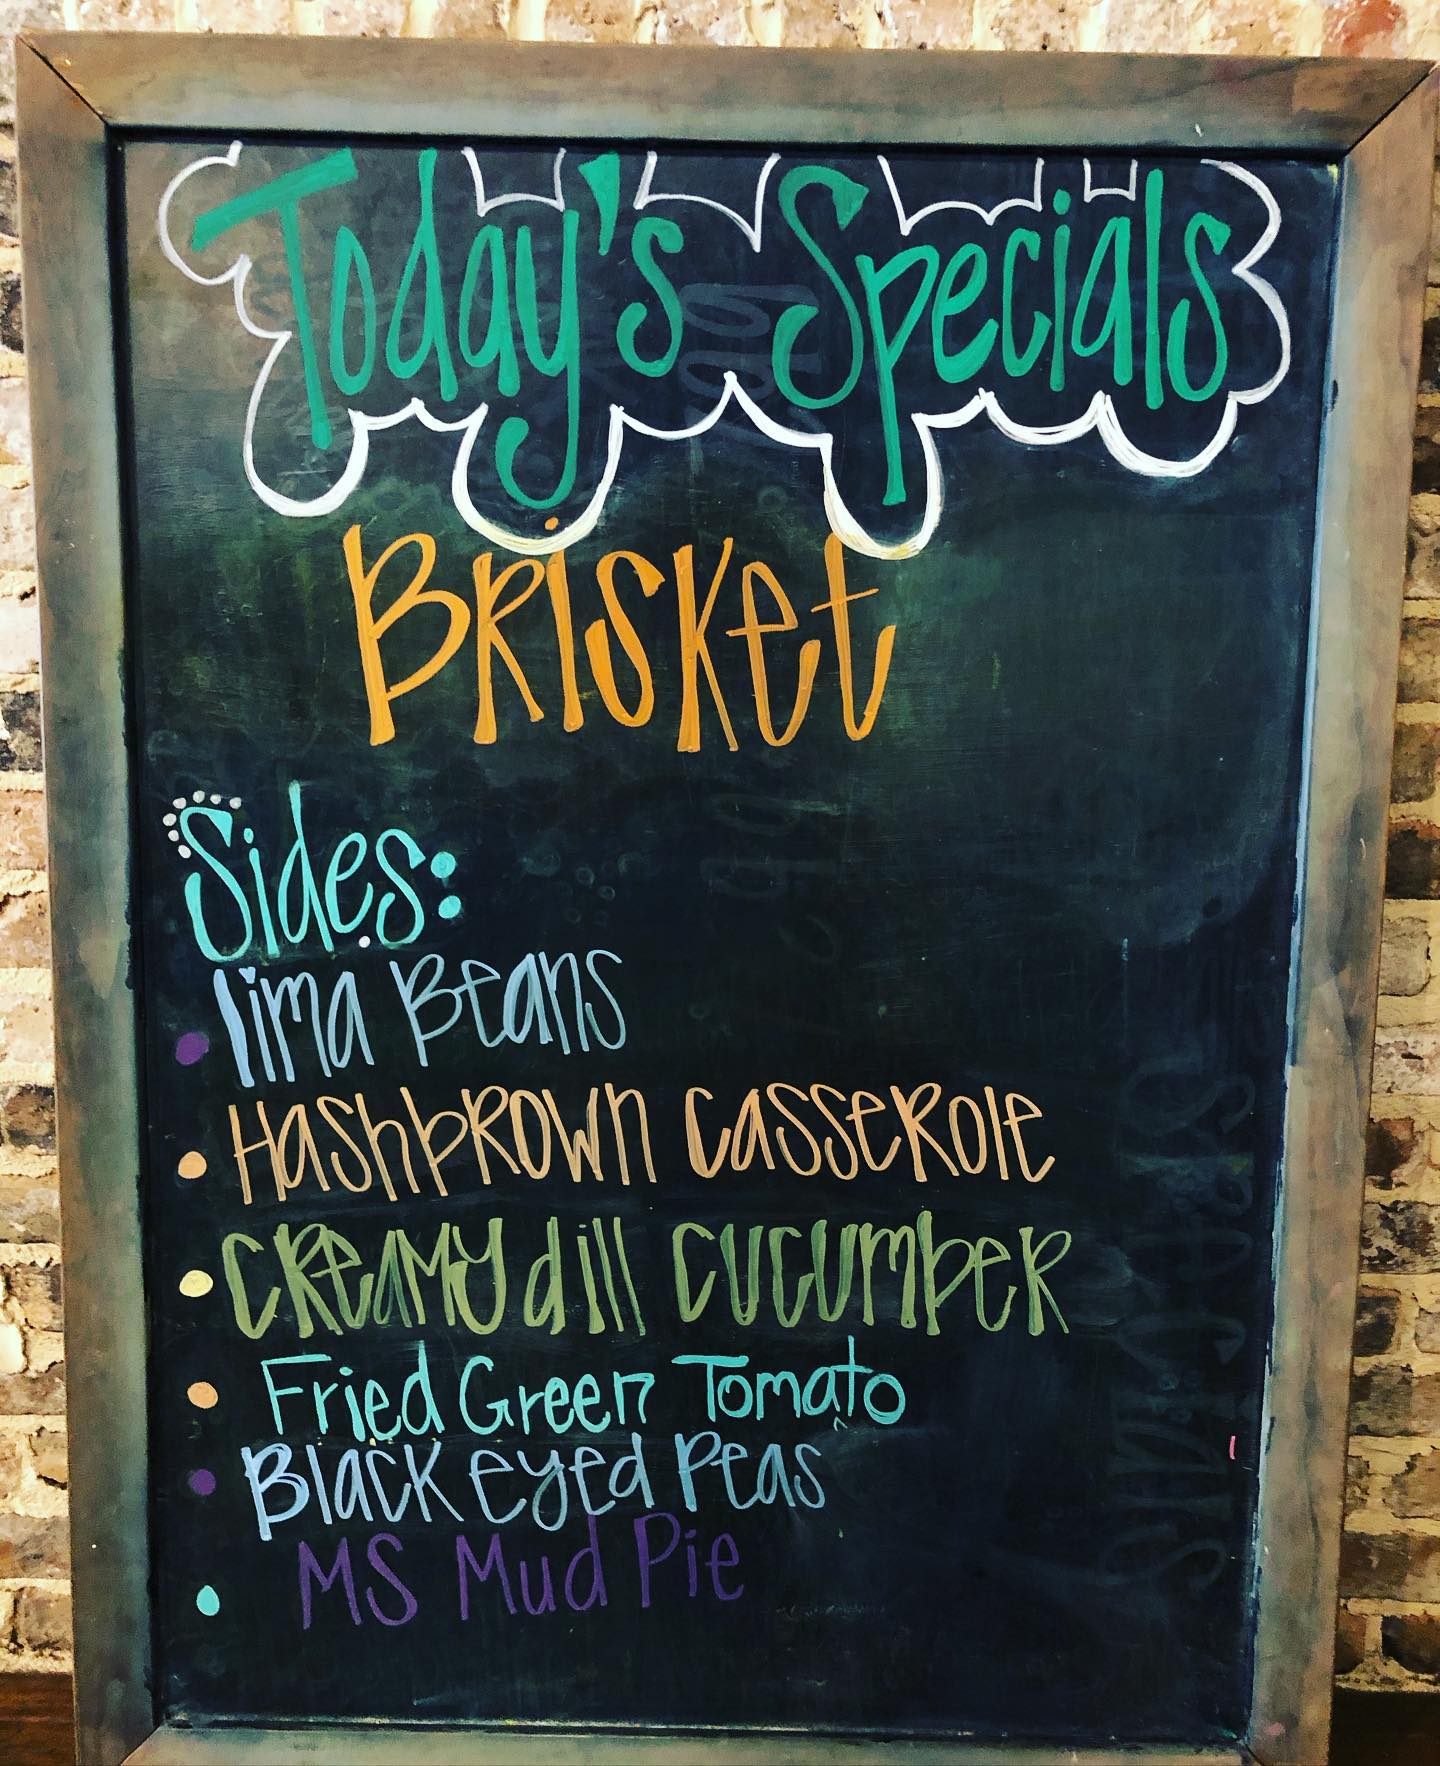 Today's Specials
BRisket
Sides:
lima Beans
HashbROWn CasseRole
CReamy dill cucumbeR
Fried Green Tomato
Black eyed Peas
MS Mud Pie